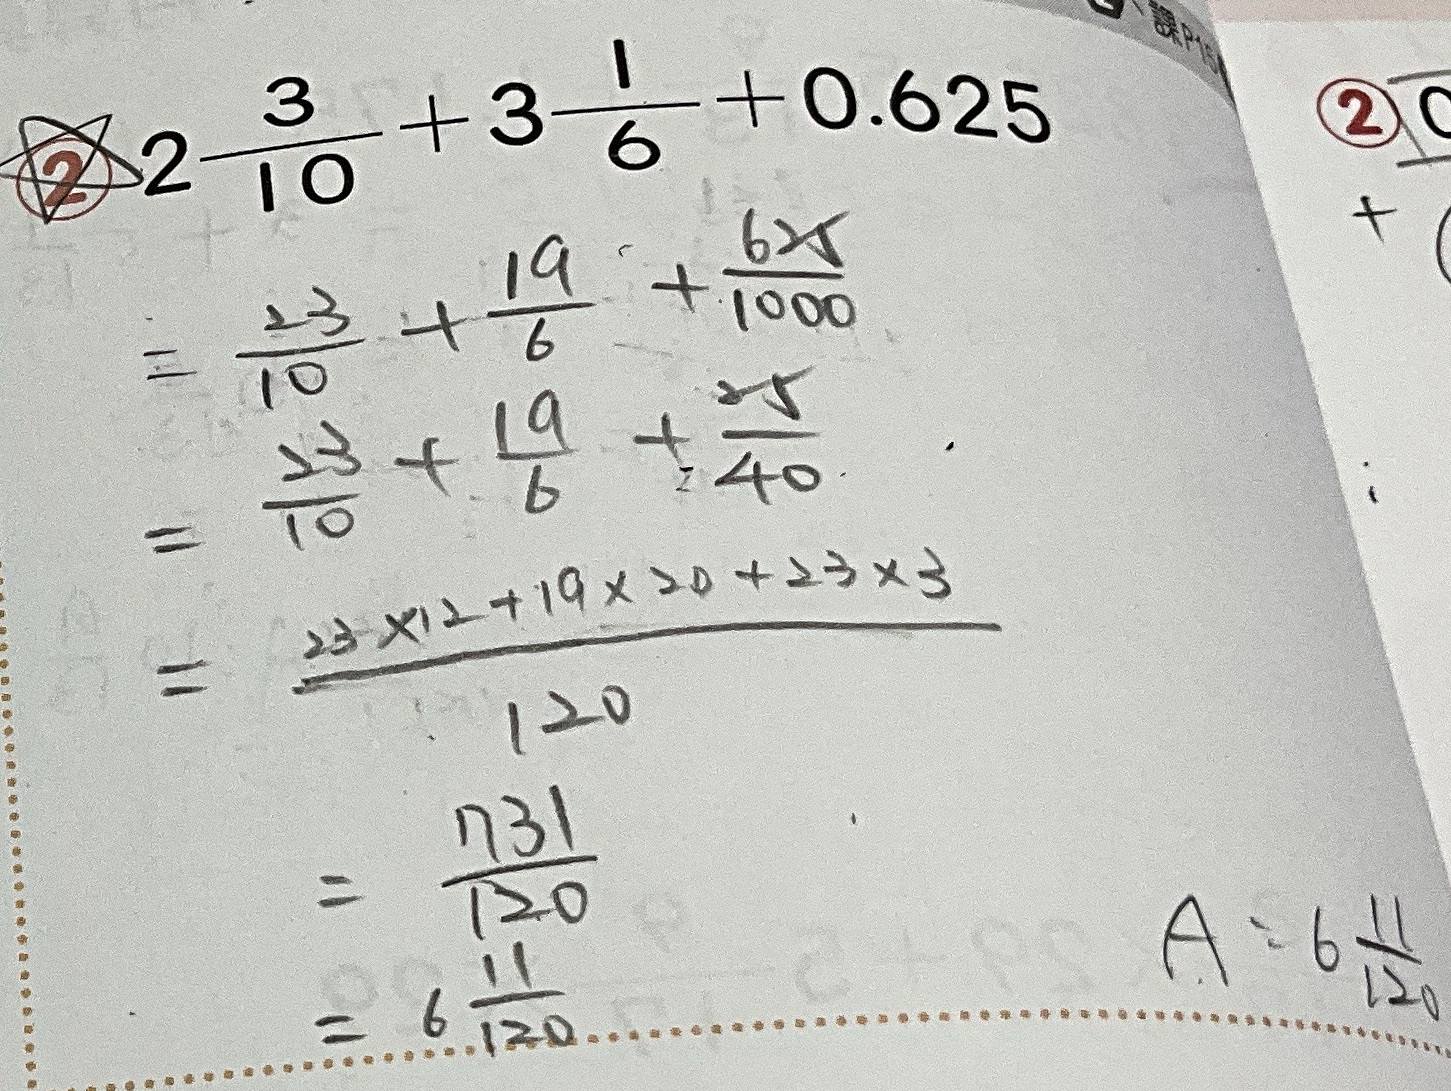 課P15
② 2 3/10 + 3 1/6 + 0.625
= 23/10 + 19/6 + 625/1000
= 23/10 + 19/6 + 25/40
= (23×12+19×20+23×3)/120
= 731/120
= 6 11/120
A: 6 11/120
②
+